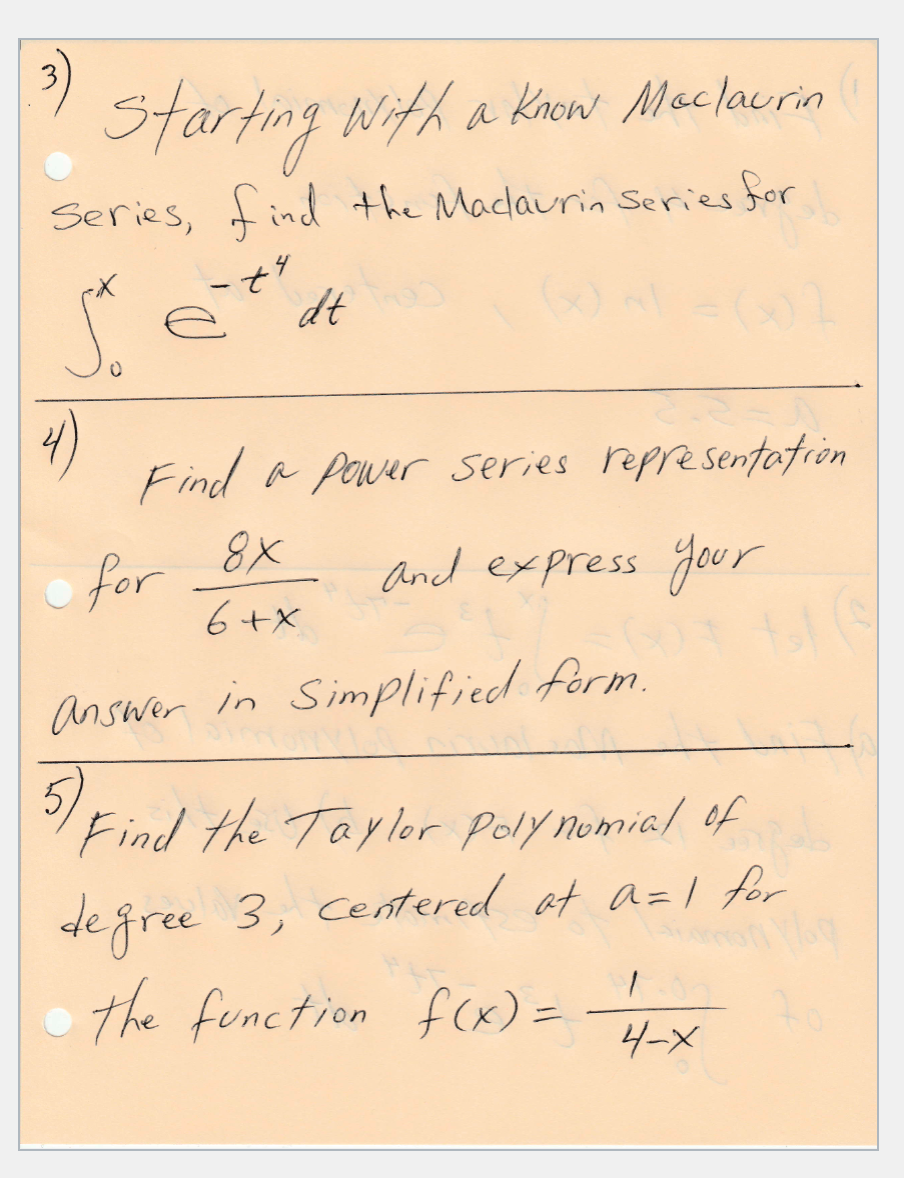 3)
Starting With a Know Maclaurin
series, find the Maclaurin series for
∫₀ˣ e^(-t⁴) dt
4)
Find a power series representation
for 8x/(6+x) and express your
answer in simplified form.
5)
Find the Taylor polynomial of
degree 3, centered at a=1 for
the function f(x) = 1/(4-x)